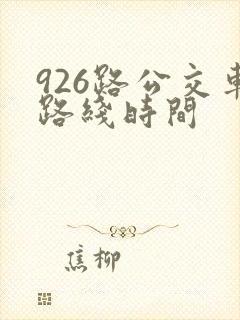 926路公交車
路綫時間
焦柳